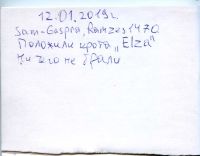 12.01.2019г.
Sam-Gaspra, Ramzes1470
Положили крота „Elza"
Ничего не брали